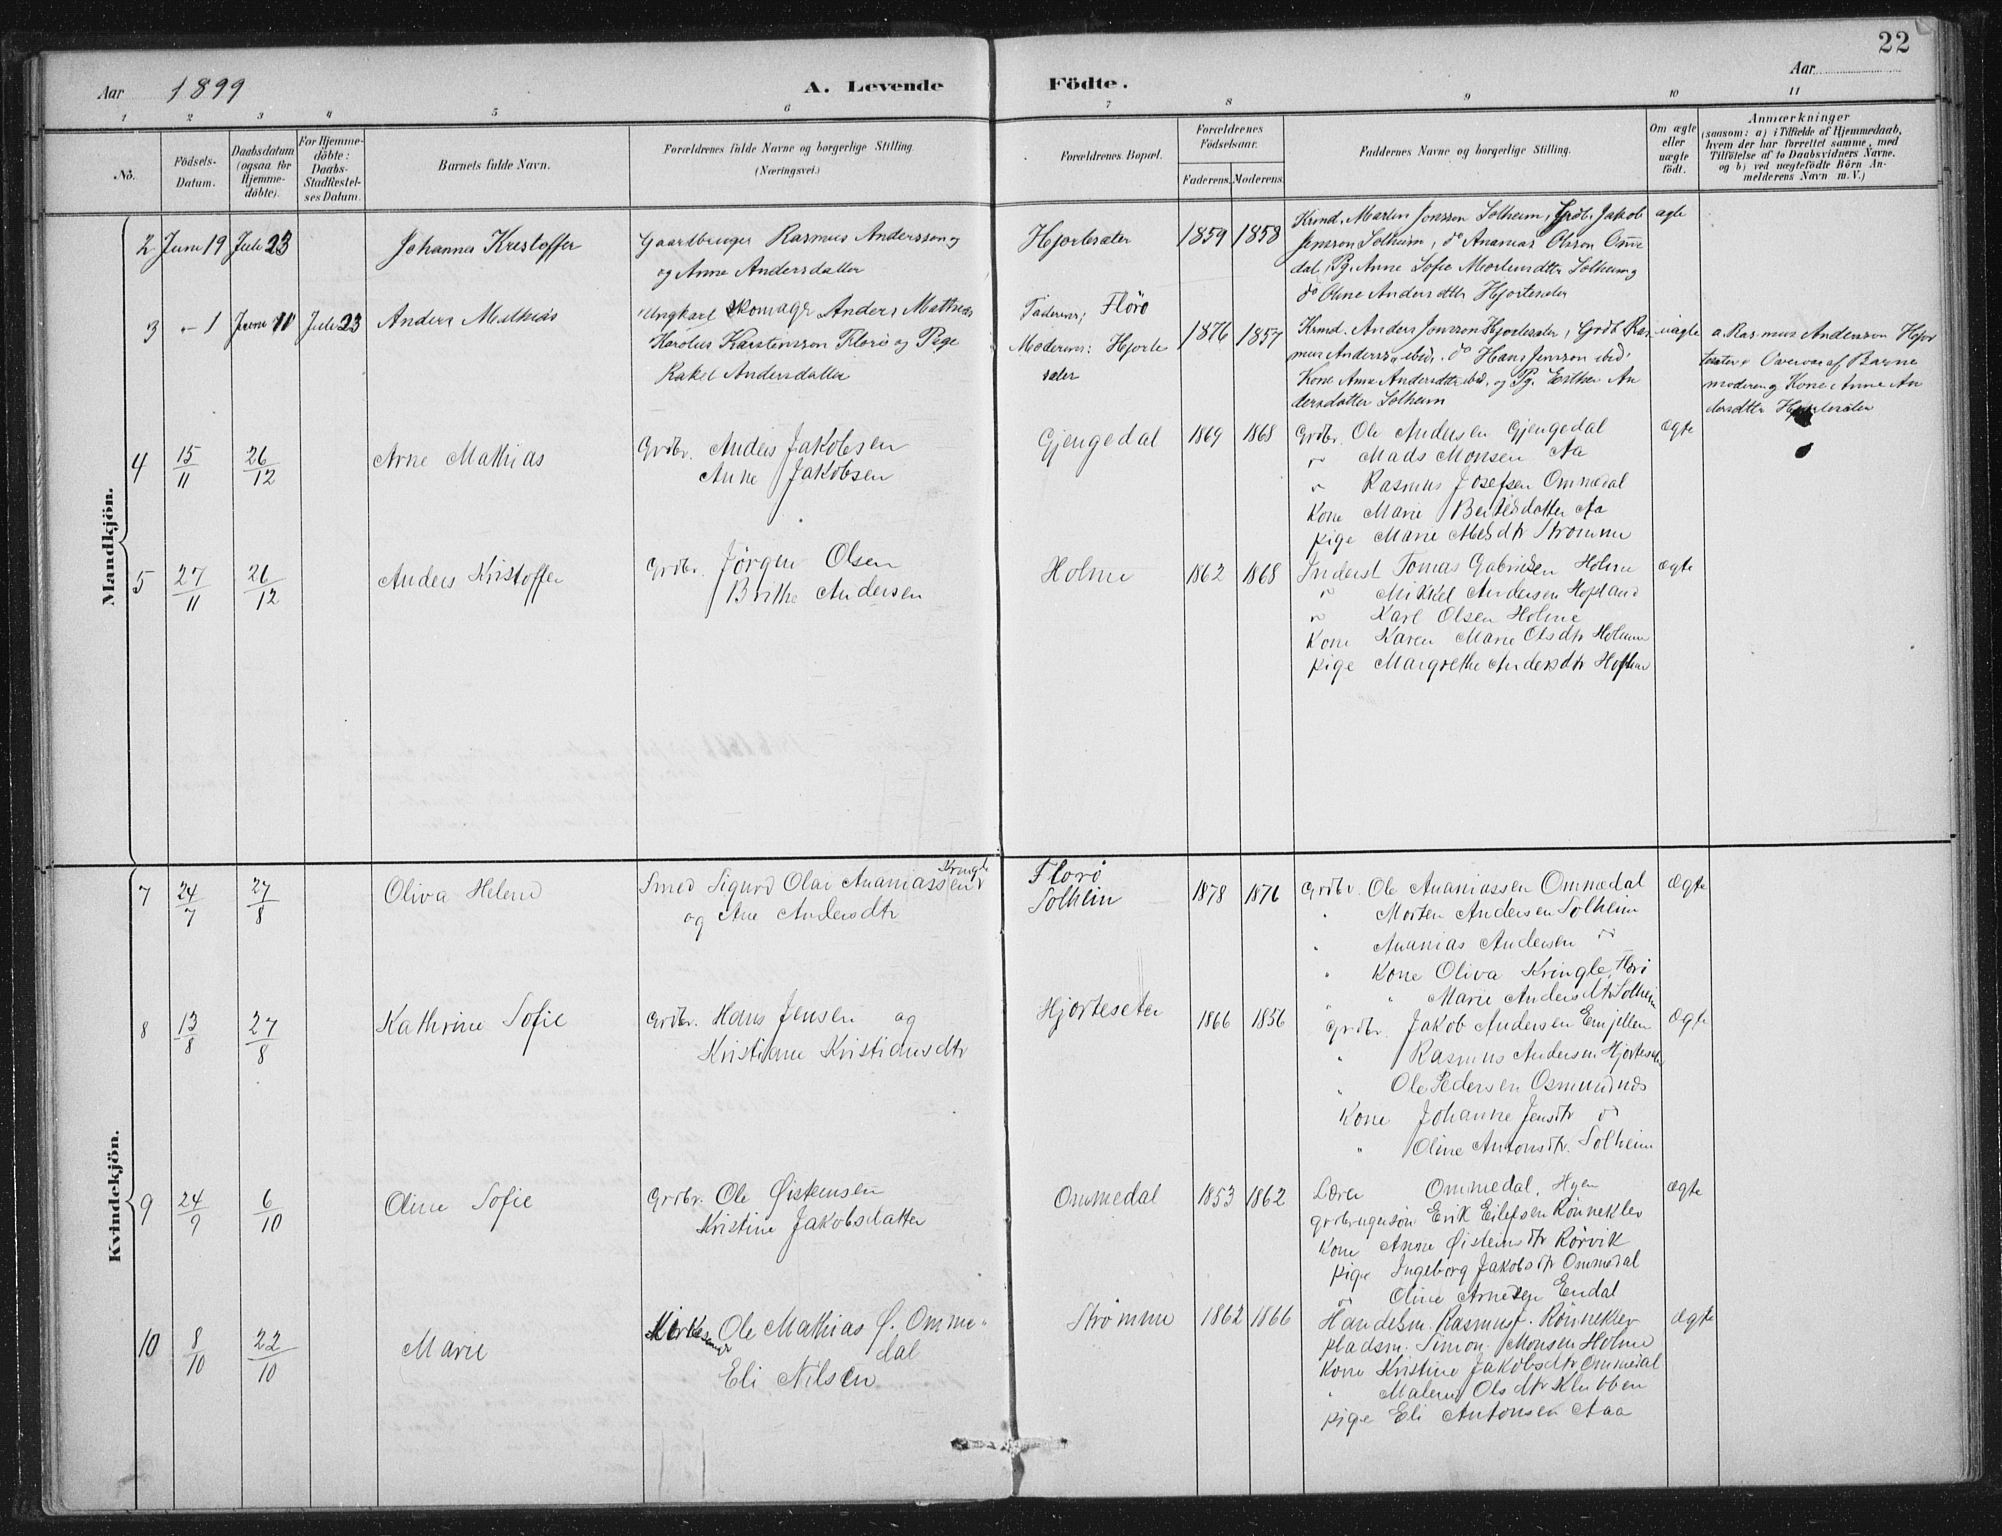 22
Aar 1899 A. Levende Födte. Aar
1 2 3 4 5 6 7 8 9 10 11
No.
Födsels-Datum.
Daabsdatum (ogsaa for Hjemme-döbte).
For Hjemme-döbte: Daabs-Stadfæstel-ses Datum.
Barnets fulde Navn.
Forældrenes fulde Navne og borgerlige Stilling. (Næringsvei.)
Forældrenes Bopæl.
Forældrenes Födselsaar. Faderens. Moderens.
Faddernes Navne og borgerlige Stilling.
Om ægte eller uægte födt.
Anmærkninger (saasom: a) i Tilfælde af Hjemmedaab, hvem der har forrettet samme, med Tilföielse af to Daabsvidners Navne. og b) ved uægtefödte Börn An-melderens Navn m. V.)
Mandkjön.
2 Juni 19 Juli 23 Johannes Krestoffer
Gaardbruger Rasmus Andersson og
og Anne Andersdatter
Hjortesæter 1859 1858
Krmd. Morten Jonsson Solheim, Grdb. Jakob
Jensson Solheim, do Ananias Olsson Omme
dal, Pg. Anne Sofie Mortensdttr Solheim og
do Oline Andersdttr Hjortesæter
ægte
3 - 1 Juni 11 Juli 23 Anders Mathias
Ungkarl Skomager Anders Mathias
Karolus Karstensson Florø og Pige
Rakel Andersdatter
Faderens; Florø
Moderens: Hjorte
sæter
1876 1857
Krmd. Anders Jonsson Hjortesæter, Grdb. Ras
mus Anderss. ibid. do Hans Jensson ibid,
Kone Anne Andersdttr ibid. og Pg. Esther An
dersdatter Solheim
uægte
a. Rasmus Andersson Hjor
tesæter Overvær af Barne
moderen og Kone Anne An
dersdttr Hjortesæter
4 15/11 26/12 Arne Mathias
Grdbr. Anders Jakobsen
Anne Jakobsen
Gjengedal 1869 1868
Grdbr. Ole Andersen Gjengedal
" Mads Monsen Aa
" Rasmus Josefsen Ommedal
Kone Marie Bertesdatter Aa
pige Marie Mesdtr Strømme
Ægte
5 27/11 26/12 Anders Kristoffer
Grdbr. Jørgen Olsen
Brithe Andersen
Holme 1862 1868
Inderst Tomas Gabrielsen Holme
" Mikkel Andersen Hopland
" Karl Olsen Holme
Kone Karen Marie Olsdtr Holme
pige Margrethe Andersdtr
Ægte
Kvindekjön.
7 24/7 27/8 Oliva Helene
Smed Sigurd Olai Ananiassen Kringle
og Ane Andersdtr
Florø
Solheim
1878 1876
Grdbr. Ole Ananiassen Ommedal
" Morten Andersen Solheim
" Ananias Andersen do
" Kone Oliva Kringle, Florø
" Marie Andersdtr Solheim
Ægte
8 13/8 27/8 Kathrine Sofie
Grdbr. Hans Jensen og
Kristiane Kristiansdtr
Hjorteseter 1866 1856
Grdbr. Jakob Andersen Emjellen
" Rasmus Andersen Hjorteseter
" Ole Pedersen Osmundnes
Kone Johanne Jensdtr do
" Oline Antonsdtr. Solheim
Ægte
9 24/9 6/10 Oline Sofie
Grdbr. Ole Øistensen
Kristine Jakobsdatter
Ommedal 1853 1862
Lærer Ommedal, Hyen
Grdbrugersøn Erik Eilefsen Rønneklev
Kone Anne Øisteinsdtr Rørvik
pige Ingeborg Jakobsdtr Ommedal
do Oline Arnesen Endal
Ægte
10 8/10 22/10 Marie
Kirkesanger Ole Mathias Ø. Omme-
dal
Eli Nilsen
Strømme 1862 1866
Handelsm. Rasmus J. Rønneklev
pladsm. Simon Monsen Holme
Kone Kristine Jakobsdtr Ommedal
" Malene Olsdtr Klubben
pige Eli Antonsen Aaa
Ægte